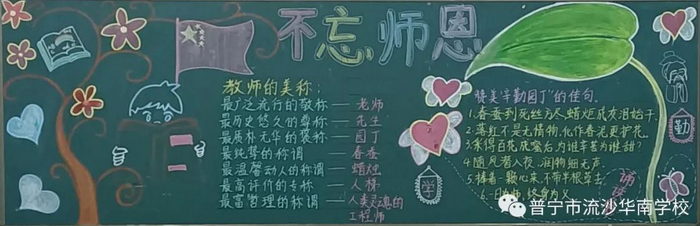 不忘师恩
教师的美称：
最广泛流行的敬称——老师
最历史悠久的尊称——先生
最质朴无华的褒称——园丁
最纯挚的称谓——春蚕
最温馨动人的称谓——蜡烛
最高评价的专称——人梯
最富哲理的称谓——人类灵魂的
工程师
赞美辛勤园丁"的佳句。
1.春蚕到死丝方尽,蜡烛成灰泪始干。
2.落红不是无情物,化作春泥更护花。
3.采得百花成蜜后,为谁辛苦为谁甜?
4.随风潜入夜,润物细无声。
5.捧着一颗心来,不带半根草去。
6.日为师,终身为父
勤
学
普宁市流沙华南学校